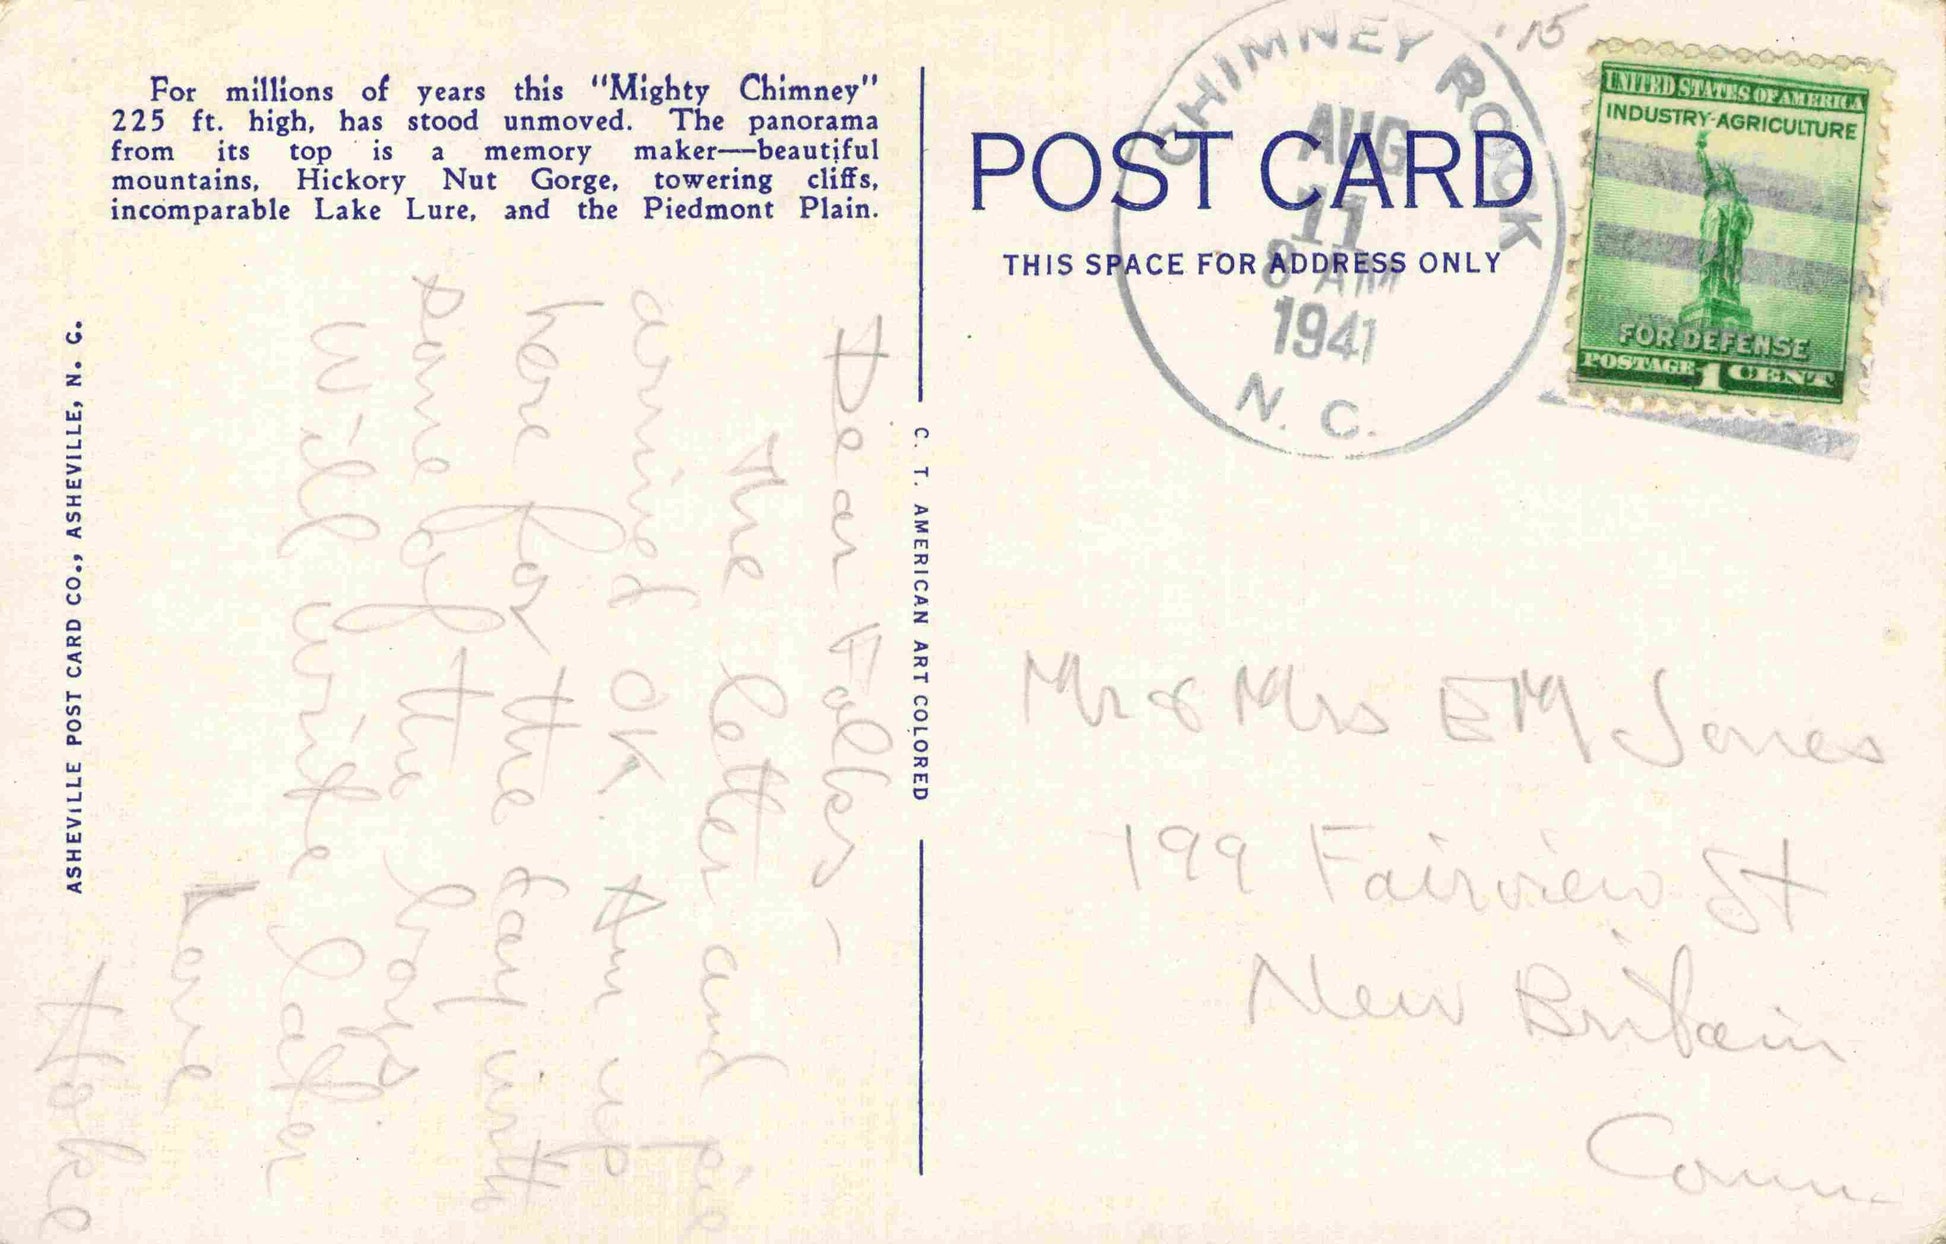 For millions of years this "Mighty Chimney"
225 ft. high, has stood unmoved. The panorama
from its top is a memory maker—beautiful
mountains, Hickory Nut Gorge, towering cliffs,
incomparable Lake Lure, and the Piedmont Plain.
Dear Folks,—
The letter and pie
arrived OK. Am up
here for the day with
some of the boys.
Will write later
Love
ASHEVILLE POST CARD CO., ASHEVILLE, N. C.
C. T. AMERICAN ART COLORED
POST CARD
THIS SPACE FOR ADDRESS ONLY
CHIMNEY ROCK
AUG
11
8 AM
1941
N. C.
'15
UNITED STATES OF AMERICA
INDUSTRY-AGRICULTURE
FOR DEFENSE
POSTAGE 1 CENT
Mr & Mrs E M Jones
199 Fairview St
New Britain
Conn.